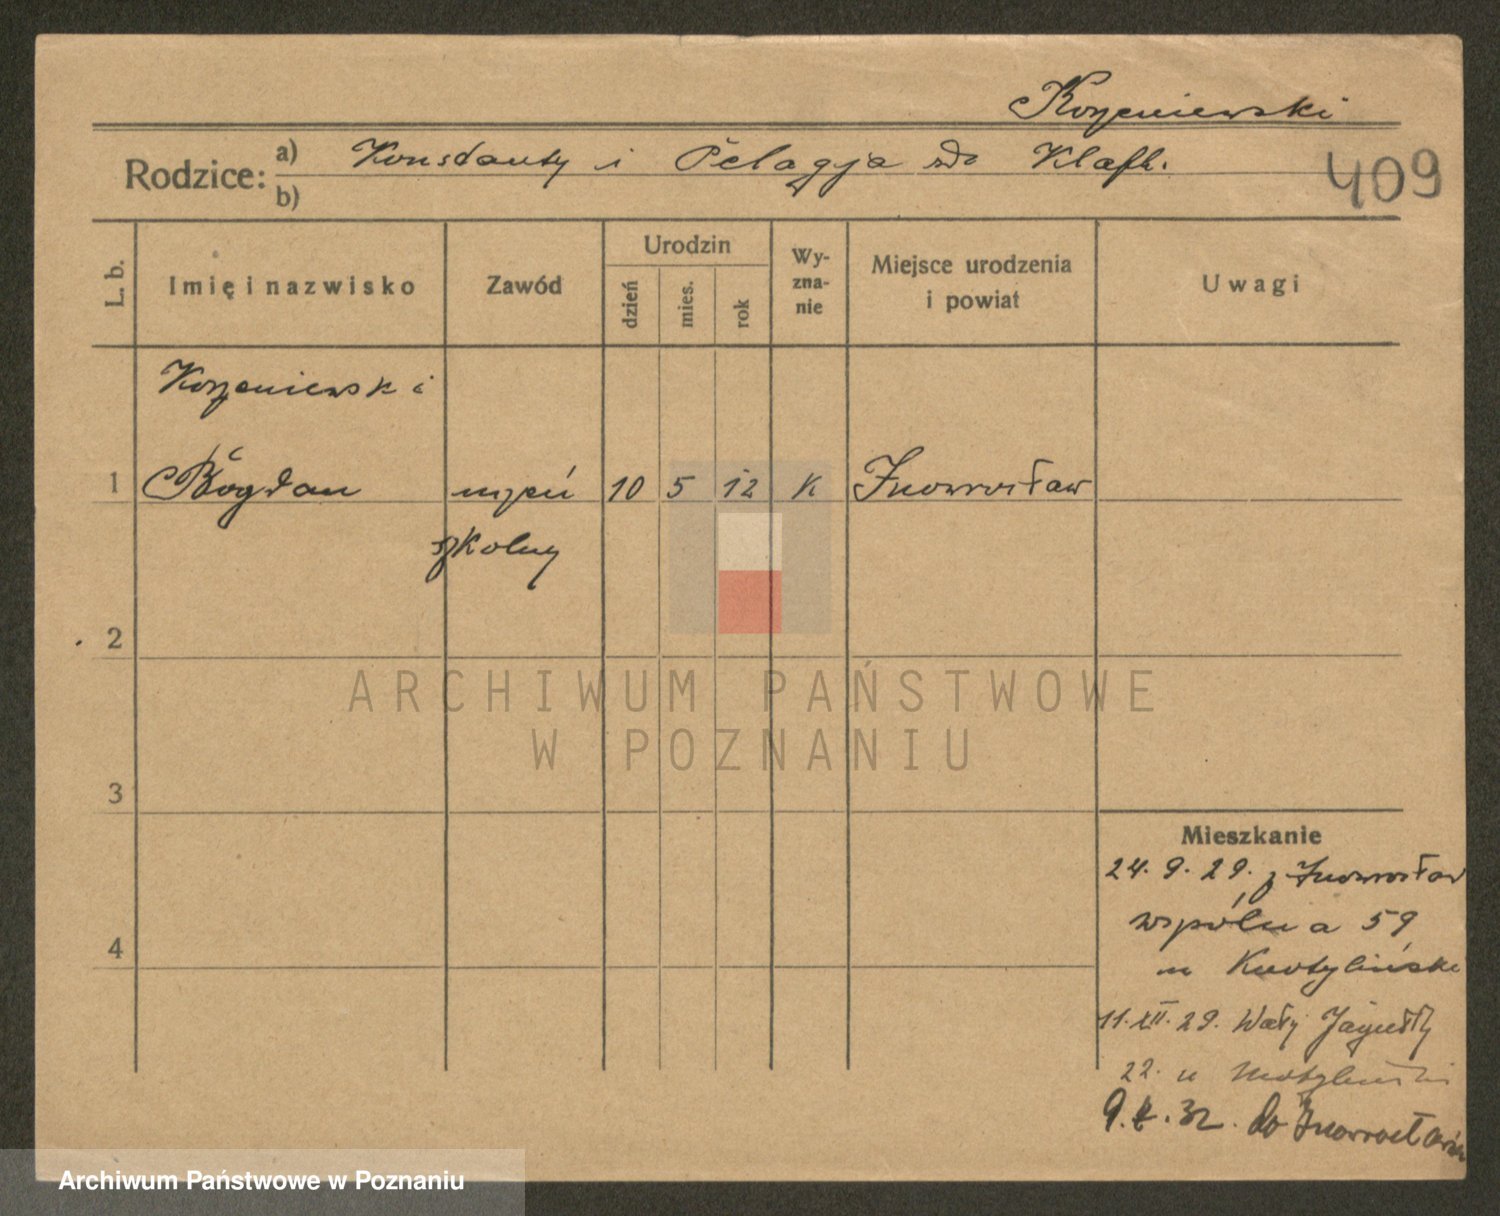 Korzeniewski
Rodzice: a) Konstanty i Pelagja zdo Klafk.
b)
409
L. b. Imię i nazwisko Zawód Urodzin dzień mies. rok Wy-zna-nie Miejsce urodzenia i powiat Uwagi
Korzeniewski
1 Bogdan uczeń 10 5 12 K Inowrocław
szkolny
2
ARCHIWUM PAŃSTWOWE
W POZNANIU
3
Mieszkanie
24. 9. 29. z Inowrocław
wspólna 59
4
u
11. XII. 29. Wały Jagiełły
22. u
9. 32. do Inowrocławia
Archiwum Państwowe w Poznaniu